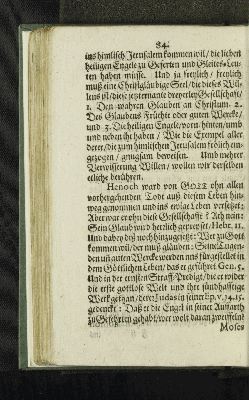 34.
ins himlisch Jerusalem kommen wil / die lieben
heiligen Engele zu Geferten und Gleites Leu-
ten haben müsse. Und ja freylich / freylich
muß eine Christgläubige Seel / die dieses Wil-
lens ist / diese jetzternante dreyerley Gesellschafft /
1. Den wahren Glauben an Christum. 2.
Des Glaubens Früchte oder guten Wercke /
und 3. Die heiligen Engele / vorn / hinten / umb
und neben ihr haben / Wie die Exempel aller
derer / die zum himlischen Jerusalem frölich ein-
gezogen / gnugsam beweisen. Umb mehrer
Verwisserung Willen / wollen wir derselben
etliche berühren.
Henoch ward von GOtt ohn allen
vorhergehenden Todt auß diesem Leben hin-
weg genommen und ins ewige Leben versetzt;
Aber war er ohn diese Gesellschafft? Ach nein:
Sein Glaub wird herrlich gepreiset / Hebr. 11.
Und dabey diß noch hinzugesetzt: Wer zu Gott
kommen wil / der muß gläuben: Seine Tugen-
den uñ guten Wercke werden uns fürgestellet in
dem Göttlichen Leben / das er geführet Gen. 5.
Und in der ernsten Straff-Predigt / die er wider
die erste gottlose Welt und ihre sündhafftige
Werck gethan / derer Judas in seiner Ep. v. 14. 15.
gedenckt: Daß er die Engel in seiner Auffarth
zu Geferten gehabt / wer wolt daran zweiffeln?
Moses